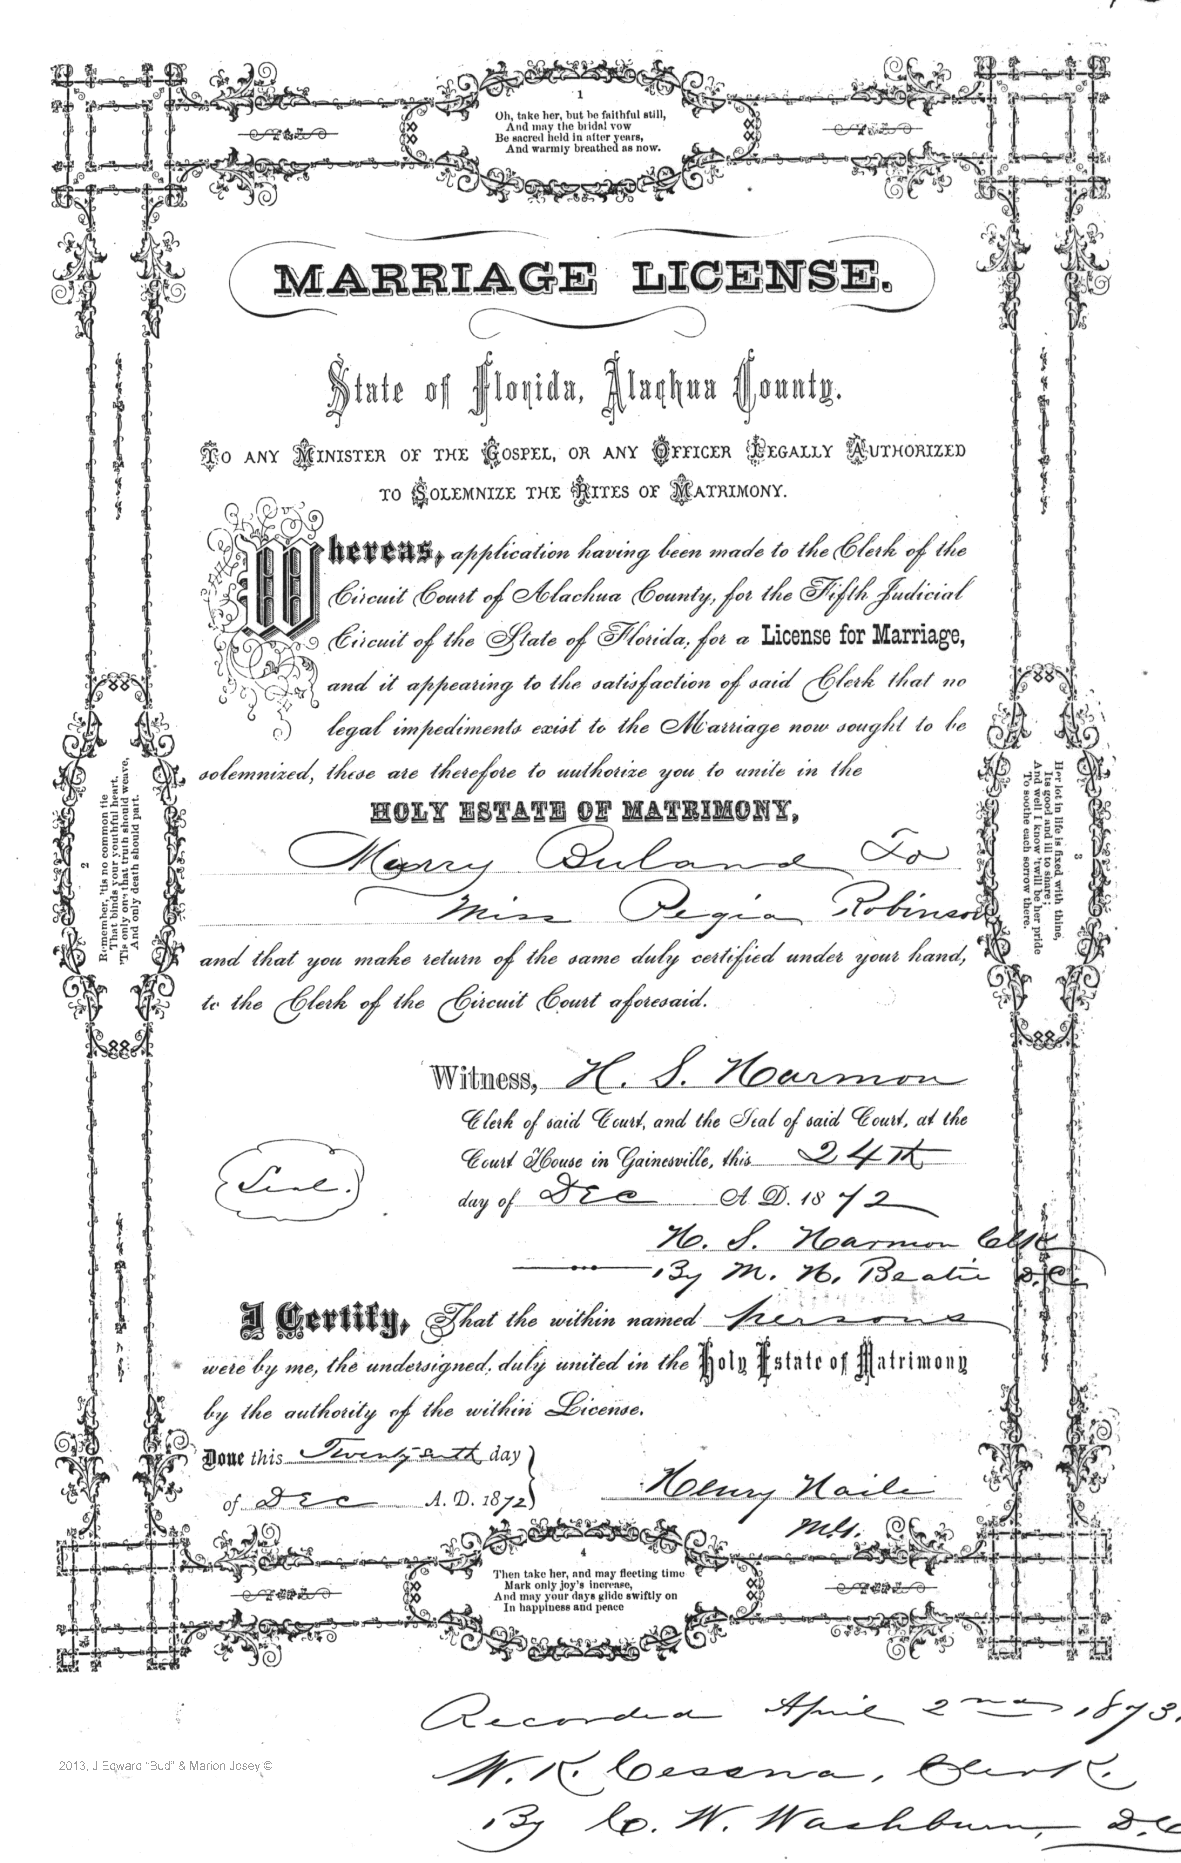 1
Oh, take her, but be faithful still,
And may the bridal vow
Be sacred held in after years,
And warmly breathed as now.
MARRIAGE LICENSE.
State of Florida, Alachua County.
To any Minister of the Gospel, or any Officer Legally Authorized
to Solemnize the Rites of Matrimony.
Whereas, application having been made to the Clerk of the
Circuit Court of Alachua County, for the Fifth Judicial
Circuit of the State of Florida, for a License for Marriage,
and it appearing to the satisfaction of said Clerk that no
legal impediments exist to the Marriage now sought to be
solemnized, these are therefore to authorize you to unite in the
HOLY ESTATE OF MATRIMONY,
Marry Buland To
Miss Regia Robinson
and that you make return of the same duly certified under your hand,
to the Clerk of the Circuit Court aforesaid.
2
Remember, 'tis no common tie
That binds your youthful heart,
'Tis only one that truth should weave,
And only death should part.
3
Her lot in life is fixed with thine,
Its good and ill to share;
And well I know 'twill be her pride
To soothe each sorrow there.
Witness, H. S. Harmon
Clerk of said Court, and the Seal of said Court, at the
Court House in Gainesville, this 24th
day of Dec A. D. 1872
Seal.
H. S. Harmon Clk
By M. H. Beatie D.C.
I Certify, That the within named persons
were by me, the undersigned, duly united in the Holy Estate of Matrimony
by the authority of the within License.
Done this Twenty sixth day
of Dec A. D. 1872
Henry Haile
4
Then take her, and may fleeting time
Mark only joy's increase,
And may your days glide swiftly on
In happiness and peace
Recorded April 2nd 1873.
W. K. Cessna, Clerk.
By C. W. Washburn, D.C
2013, J Edward "Bud" & Marion Josey ©